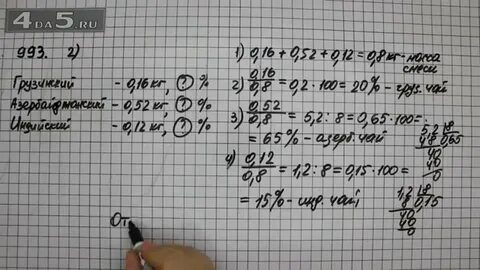 4da5.RU
993. 2)
Грузинский - 0,16 кг, ? %
Азербайджанский - 0,52 кг, ? %
Индийский - 0,12 кг, ? %
1) 0,16 + 0,52 + 0,12 = 0,8 кг - масса
смеси
2) 0,16/0,8 = 0,2 · 100 = 20% - груз. чай
3) 0,52/0,8 = 5,2 : 8 = 0,65 · 100 =
= 65% - азерб. чай
5,2 | 8
48 | 0,65
40
40
0
4) 0,12/0,8 = 1,2 : 8 = 0,15 · 100 =
= 15% - инд. чай,
1,2 | 8
8 | 0,15
40
40
0
От